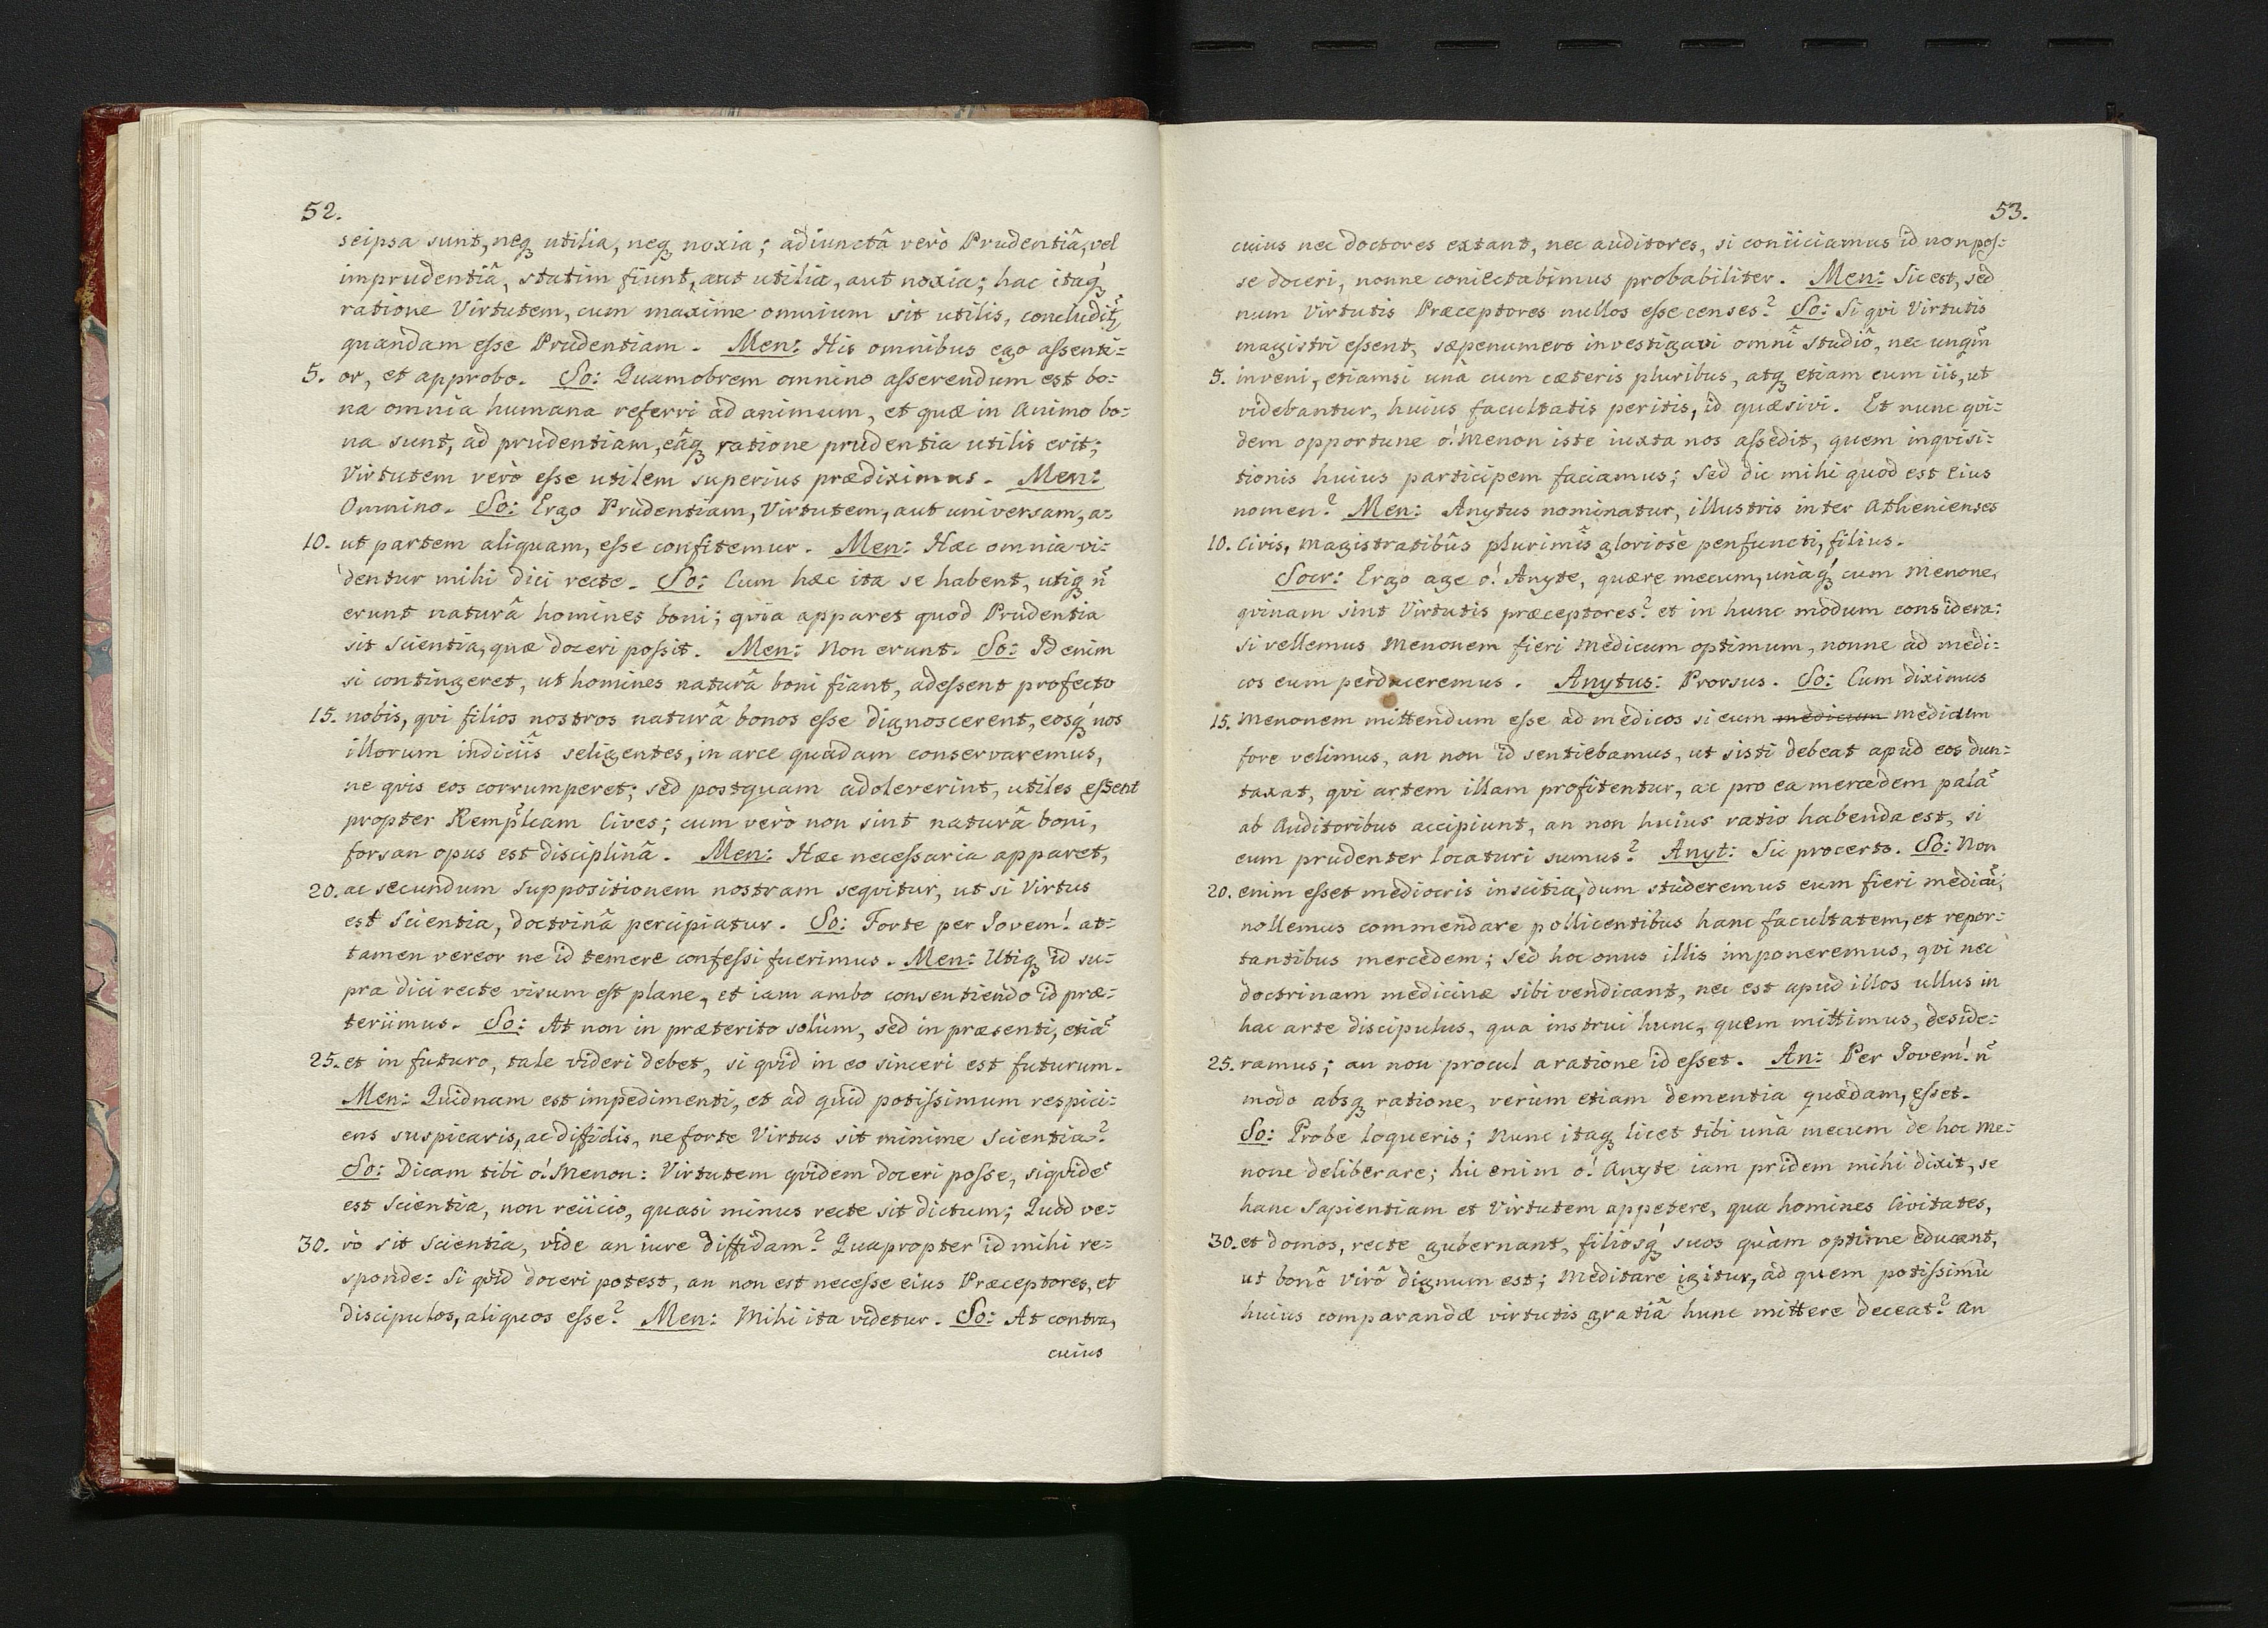 52.
seipsa sunt, neq₃ utilia, neq₃ noxia; adiunctâ verò Prudentiâ, vel
imprudentiâ, statim fiunt, aut utilia, aut noxia; hac itaq₃́
ratione Virtutem, cum maxime omnium sit utilis, concludit̃,
quandam eſse Prudentiam. Men: His omnibus ego aſsenti=
5. or, et approbo. So: Quamobrem omnino aſserendum est bo=
na omnia humana referri ad animum, et quæ in Animo bo=
na sunt, ad prudentiam, eâq₃ ratione prudentia utilis erit;
Virtutem verò eſse utilem superius prædiximus. Men:
Omnino. So: Ergo Prudentiam, Virtutem, aut universam, a=
10. ut partem aliquam, eſse confitemur. Men: Hæc omnia vi=
dentur mihi dici recte. So: Cum hæc ita se habent, utiq₃ ñ
erunt naturâ homines boni; qvia apparet quod Prudentia
sit scientia, quæ doceri poſsit. Men: Non erunt. So: Id enim
si contingeret, ut homines naturâ boni fiant, adeſsent profecto
15. nobis, qvi filios nostros naturâ bonos eſse dignoscerent, eosq́ nos
illorum indiciîs seligentes, in arce quadam conservaremus,
ne qvis eos corrumperet; sed postquam adoleverint, utiles eſsent
propter Remp̃lcam Cives; cum verò non sint naturâ boni,
forsan opus est disciplinâ. Men: Hæc neceſsaria apparet,
20. ac secundum suppositionem nostram seqvitur, ut si Virtus
est Scientia, doctrinâ percipiatur. So: Forte per Jovem! at=
tamen vereor ne id temere confeſsi fuerimus. Men: Utiq₃ id su=
pra dici recte visum est plane, et iam ambo consentiendo id præ=
teriimus. So: At non in præterito solùm, sed in præsenti, etiã
25. et in futuro, tale videri debet, si qvid in eo sinceri est futurum.
Men: Quidnam est impedimenti, et ad quid potiſsimum respici=
ens suspicaris, ac diffidis, ne forte Virtus sit minime Scientia?
So: Dicam tibi ó! Menon: Virtutem qvidem doceri poſse, siqvidẽ
est scientia, non reiicio, quasi minus recte sit dictum; Quod ve=
30. rò sit scientia, vide an iure diffidam? Quapropter id mihi re=
sponde: Si qvid doceri potest, an non est neceſse eius Præceptores, et
discipulos, aliquos eſse? Men: Mihi ita videtur. So: At contra,
cuius
53.
cuius nec doctores extant, nec auditores, si coniiciamus id non poſ=
se doceri, nonne coniectabimus probabiliter. Men: Sic est, sed
num Virtutis Præceptores nullos eſse censes? So: Si qvi Virtutis
magistri eſsent, sæpenumero investigavi omnî studiô, nec unqm̃
5. inveni, etiamsi unà cum cæteris pluribus, atq₃ etiam cum iis, ut
videbantur, huius facultatis peritis, id quæsivi. Et nunc qvi=
dem opportune ó! Menon iste iuxta nos aſsedit, quem inqvisi=
tionis huius participem faciamus; sed dic mihi quod est Eius
nomen? Men: Anytus nominatur, illustris inter Athenienses
10. Civis, magistratibûs plurimîs gloriosè penfuncti, filius.
Socr: Ergo age ó! Anyte, quære mecum, unàq₃́ cum Menone,
qvinam sint Virtutis præceptores? et in hunc modum considera:
si vellemus Menonem fieri Medicum optimum, nonne ad medi=
cos eum perduceremus. Anytus: Prorsus. So: Cum diximus
15. Menonem mittendum eſse ad medicos si eum medicum medicum
fore velimus, an non id sentiebamus, ut sisti debeat apud eos dun=
taxat, qvi artem illam profitentur, ac pro ea mercedem palã
ab Auditoribus accipiunt, an non huius ratio habenda est, si
eum prudenter locaturi sumus? Anyt: Sic procerto. So: Non
20. enim eſset mediocris inscitia, dum studeremus eum fieri medicũ,
nollemus commendare pollicentibus hanc facultatem, et repor=
tantibus mercedem; sed hoc onus illis imponeremus, qvi nec
doctrinam medicinæ sibi vendicant, nec est apud illos ullus in
hac arte discipulus, qua instrui hunc, quem mittimus, deside=
25. ramus; an non procul a ratione id eſset. An: Per Jovem! ñ
modo absq₃ ratione, verùm etiam dementia quædam, eſset.
So: Probe loqueris; Nunc itaq₃ licet tibi unà mecum de hoc Me=
none deliberare; hic enim ó! Anyte iam pridem mihi dixit, se
hanc Sapientiam et Virtutem appetere, qua homines Civitates,
30. et domos, recte gubernant, filiosq₃́ suos quàm optime educant,
ut bonô Virô dignum est; Meditare igitur, ad quem potiſsimũ
huius comparandæ virtutis gratiâ hunc mittere deceat? an